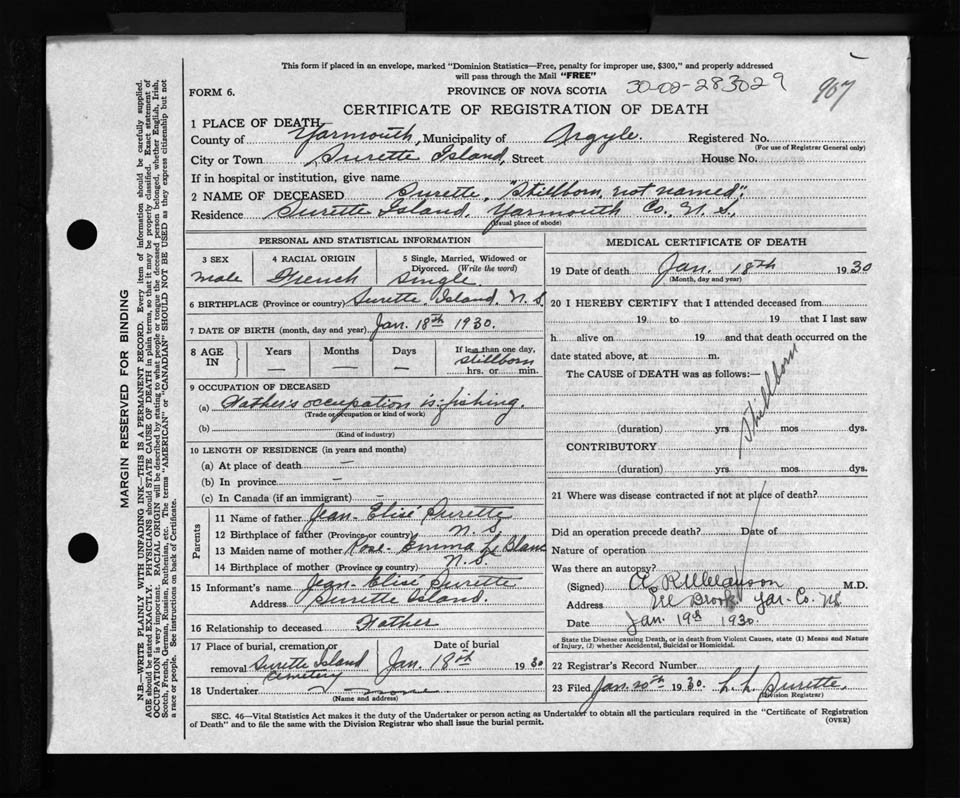 This form if placed in an envelope, marked "Dominion Statistics—Free, penalty for improper use, $300," and properly addressed
will pass through the Mail "FREE"
FORM 6.
PROVINCE OF NOVA SCOTIA
30-02-283029
967
CERTIFICATE OF REGISTRATION OF DEATH
1 PLACE OF DEATH
County of Yarmouth, Municipality of Argyle. Registered No.
(For use of Registrar General only)
City or Town Surette Island, Street House No.
If in hospital or institution, give name
2 NAME OF DECEASED Surette, "Stillborn, not named".
Residence Surette Island, Yarmouth Co. N. S.,
(Usual place of abode)
PERSONAL AND STATISTICAL INFORMATION
3 SEX 4 RACIAL ORIGIN 5 Single, Married, Widowed or
Divorced. (Write the word)
male French Single.
6 BIRTHPLACE (Province or country) Surette Island, N. S.
7 DATE OF BIRTH (month, day and year) Jan. 18th 1930.
8 AGE IN Years Months Days If less than one day,
— — — Stillborn
hrs. or min.
9 OCCUPATION OF DECEASED
(a) Father's occupation is fishing.
(Trade or occupation or kind of work)
(b)
(Kind of industry)
10 LENGTH OF RESIDENCE (in years and months)
(a) At place of death —
(b) In province —
(c) In Canada (if an immigrant) —
Parents
11 Name of father Jean-Elisé Surette
12 Birthplace of father (Province or country) N. S.
13 Maiden name of mother Rose-Emma LeBlanc
14 Birthplace of mother (Province or country) N. S.
15 Informant's name Jean-Elisé Surette
Address Surette Island.
16 Relationship to deceased Father
17 Place of burial, cremation or Date of burial
removal Surette Island Cemetery Jan. 18th 1930
18 Undertaker none
(Name and address)
MEDICAL CERTIFICATE OF DEATH
19 Date of death Jan. 18th 1930
(Month, day and year)
20 I HEREBY CERTIFY that I attended deceased from
19 to 19 that I last saw
h alive on 19 and that death occurred on the
date stated above, at m.
The CAUSE of DEATH was as follows:—
Stillborn
(duration) yrs mos dys.
CONTRIBUTORY
(duration) yrs mos dys.
21 Where was disease contracted if not at place of death?
Did an operation precede death? Date of
Nature of operation
Was there an autopsy?
(Signed) M.D.
Address Eel Brook Yar. Co. N.S.
Date Jan. 19th 1930.
State the Disease causing Death, or in death from Violent Causes, state (1) Means and Nature
of Injury, (2) whether Accidental, Suicidal or Homicidal.
22 Registrar's Record Number
23 Filed Jan. 20th 1930. Surette.
(Division Registrar)
SEC. 46—Vital Statistics Act makes it the duty of the Undertaker or person acting as Undertaker to obtain all the particulars required in the "Certificate of Registration
of Death" and to file the same with the Division Registrar who shall issue the burial permit. (OVER)
MARGIN RESERVED FOR BINDING
N.B.—WRITE PLAINLY WITH UNFADING INK—THIS IS A PERMANENT RECORD. Every item of information should be carefully supplied.
AGE should be stated EXACTLY. PHYSICIANS should STATE CAUSE OF DEATH in plain terms, so that it may be properly classified. Exact statement of
OCCUPATION is very important. RACIAL ORIGIN will be described by stating to what people or tongue the deceased person belonged, whether English, Irish,
Scotch, French, German, Russian, Ruthenian, etc. The terms "AMERICAN" or "CANADIAN" SHOULD NOT BE USED as they express citizenship but not
a race or people. See instructions on back of Certificate.